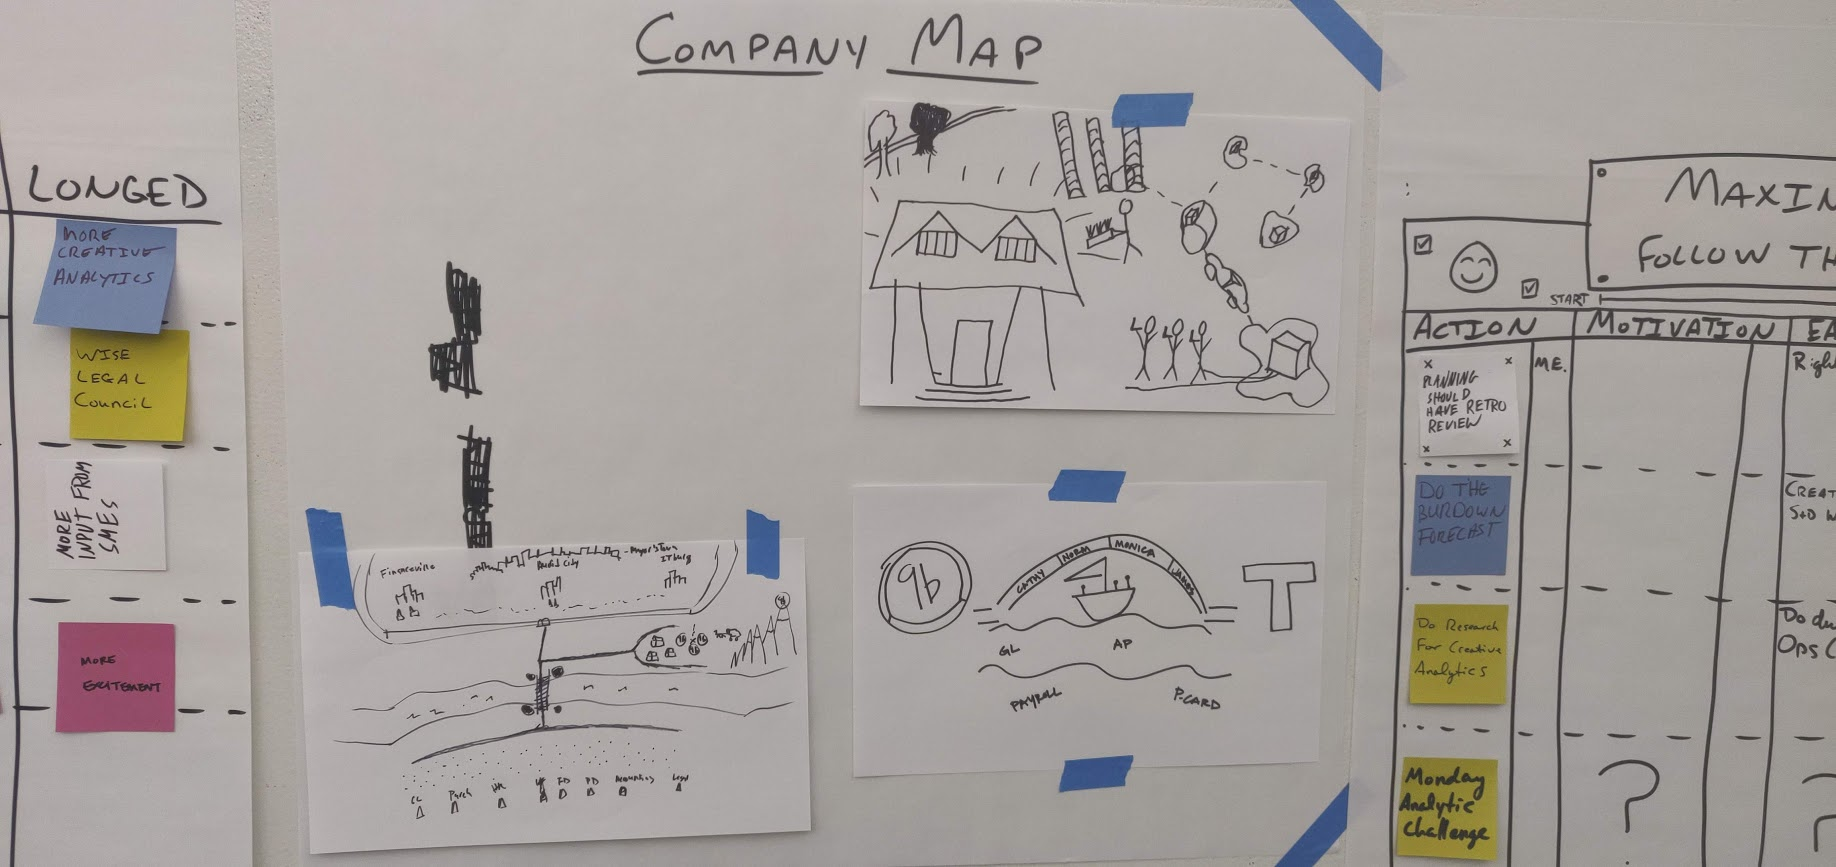 LONGED
MORE
CREATIVE
ANALYTICS
WISE
LEGAL
COUNCIL
MORE
INPUT FROM
SMES
MORE
EXCITEMENT
COMPANY MAP
Financeville
ITburg
HR
PD
Legal
9b
CATHY
NORM
MONICA
JAMES
T
GL
AP
PAYROLL
P-CARD
MAXIM
FOLLOW TH
START
ACTION
MOTIVATION
EA
PLANNING
SHOULD
HAVE RETRO
REVIEW
ME.
Righ
DO THE
BURDOWN
FORECAST
CREAT
S+D W
Do Research
For Creative
Analytics
Do du
Ops C
Monday
Analytic
Challenge
?
?